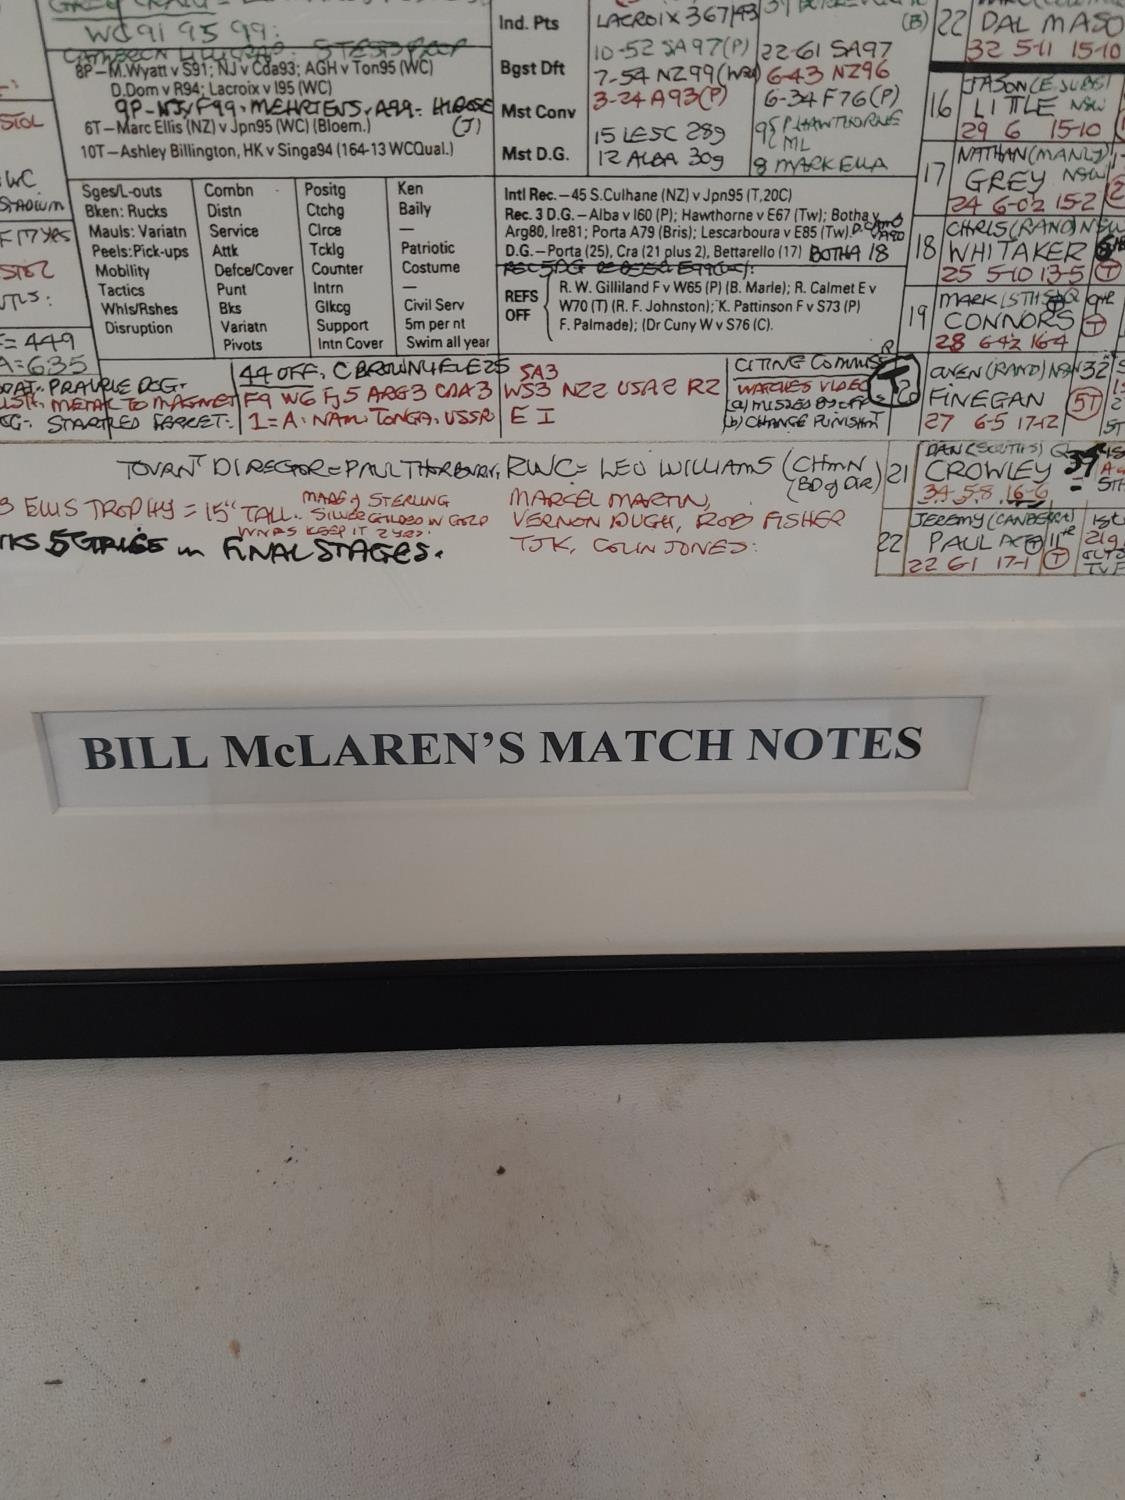 WC91 95 99:
8P—M.Wyatt v S91; NJ v Cda93; AGH v Ton95 (WC)
D.Dom v R94; Lacroix v I95 (WC)
9P-NJ v F99, MEHRTENS v A99.
6T—Marc Ellis (NZ) v Jpn95 (WC) (Bloem.)
(J)
10T—Ashley Billington, HK v Singa94 (164-13 WCQual.)
Ind. Pts
LACROIX 367/43
(B)
Bgst Dft
10-52 SA97(P)
22-61 SA97
7-54 NZ99
6-43 NZ96
Mst Conv
3-24 A93(P)
6-34 F76(P)
15 LESC 28g
95 P. HAWTHORNE
ML
Mst D.G.
12 ALBA 30g
8 MARK ELLA
Sges/L-outs Combn Positg Ken
Bken: Rucks Distn Ctchg Baily
Mauls: Variatn Service Clrce —
Peels: Pick-ups Attk Tcklg Patriotic
Mobility Defce/Cover Counter Costume
Tactics Punt Intrn —
Whls/Rshes Bks Glkcg Civil Serv
Disruption Variatn Support 5m per nt
Pivots Intn Cover Swim all year
Intl Rec.—45 S.Culhane (NZ) v Jpn95 (T,20C)
Rec. 3 D.G.—Alba v I60 (P); Hawthorne v E67 (Tw); Botha v
Arg80, Ire81; Porta A79 (Bris); Lescarboura v E85 (Tw).
D.G.—Porta (25), Cra (21 plus 2), Bettarello (17) BOTHA 18
REFS OFF
R. W. Gilliland F v W65 (P) (B. Marle); R. Calmet E v
W70 (T) (R. F. Johnston); K. Pattinson F v S73 (P)
F. Palmade); (Dr Cuny W v S76 (C).
22 DAL MASO
32 5-11 15-10
16 JASON (E.SUBS)
LITTLE NSW
29 6 15-10
17 NATHAN (MANLY)
GREY NSW
24 6-0½ 15-2
18 CHRIS (RAND) NSW
WHITAKER
25 5-10 13-5 T
19 MARK (STHS) Q
CONNORS
28 6-4½ 16-4 T
OWEN (RAND) NSW 32
FINEGAN
27 6-5 17-12 5T
21 DAN (SOUTHS) Q
CROWLEY
34 5.8 16-6
22 JEREMY (CANBERRA)
PAUL ACT
22 6-1 17-1 T
= 449
A=635
PRAIRIE DOG.
METAL TO MAGNET
STARTLED FERRET:
44 OFF, C BROWN v E LE 25
F9 W6 FJ5 ARG3 CDA3
1=A. NAM. TONGA. USSR
SA3
WS3 NZ2 USA2 R2
E I
CITING COMMISS
WATCHES VIDEO
(a) MISSED BY OFF
(b) CHANGE PUNISHMT
TOURNT DIRECTOR = PAUL THORBURN, RWC = LEO WILLIAMS (CHMN
(BD of DIR)
ELLIS TROPHY = 15" TALL. MADE of STERLING
SILVER GILDED IN GOLD
WNRS KEEP IT 4 YRS.
in FINAL STAGES.
MARCEL MARTIN,
VERNON PUGH, ROB FISHER
TJK, COLIN JONES:
BILL McLAREN'S MATCH NOTES